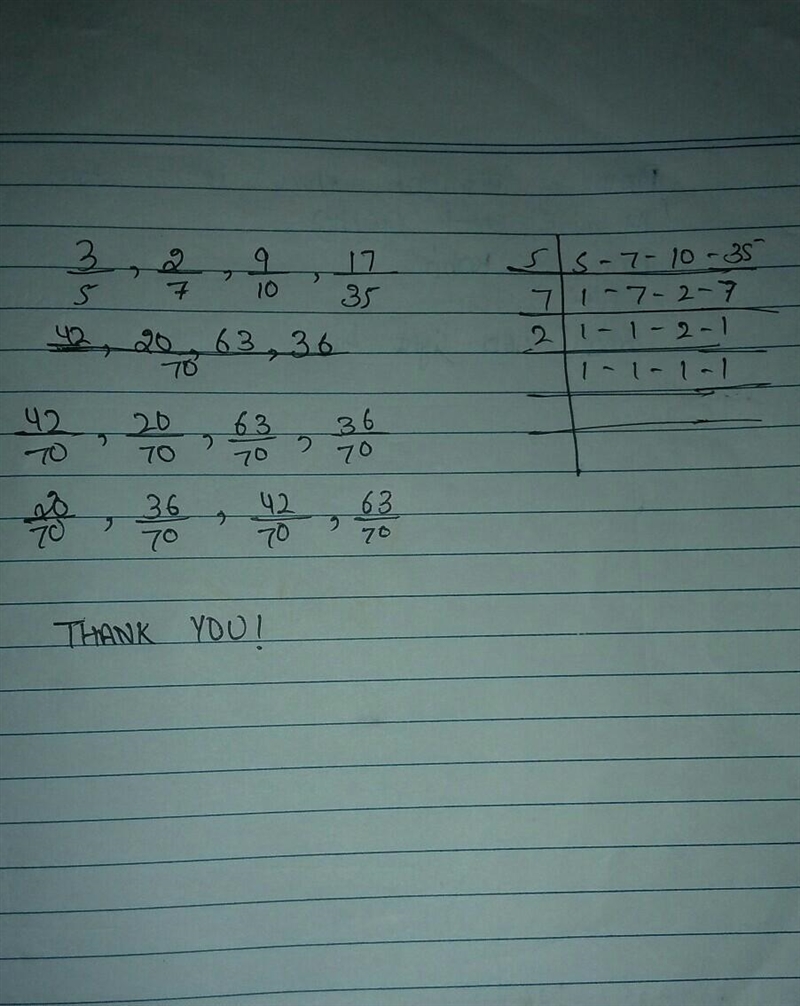 3/5 , 2/7 , 9/10 , 17/35
42 , 20 , 63 , 36
70
42/70 , 20/70 , 63/70 , 36/70
20/70 , 36/70 , 42/70 , 63/70
THANK YOU!
5 | 5 - 7 - 10 - 35
7 | 1 - 7 - 2 - 7
2 | 1 - 1 - 2 - 1
| 1 - 1 - 1 - 1